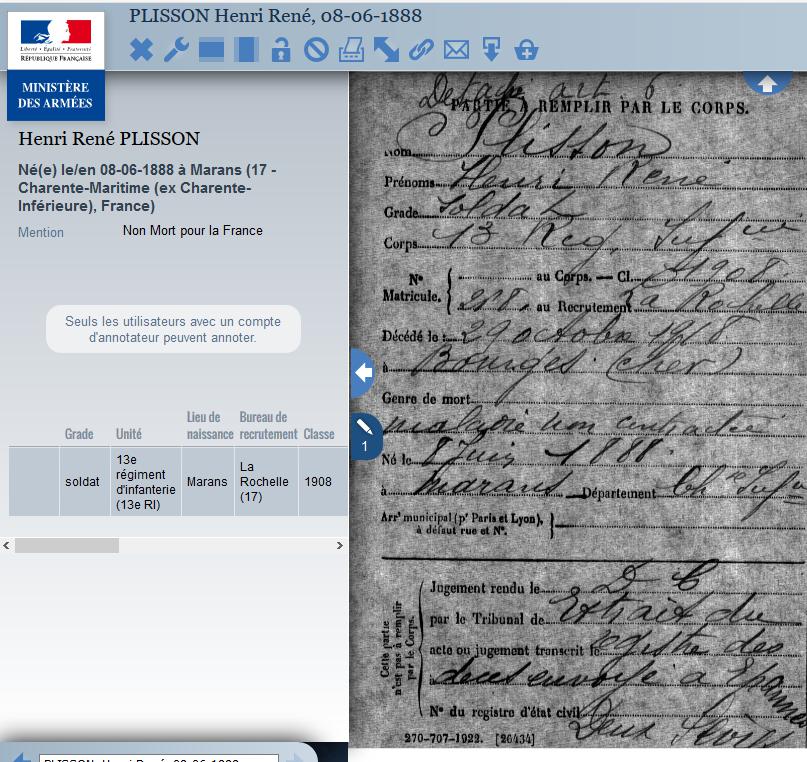 PLISSON Henri René, 08-06-1888
Liberté • Égalité • Fraternité
RÉPUBLIQUE FRANÇAISE
MINISTÈRE
DES ARMÉES
Henri René PLISSON
Né(e) le/en 08-06-1888 à Marans (17 -
Charente-Maritime (ex Charente-
Inférieure), France)
Mention Non Mort pour la France
Seuls les utilisateurs avec un compte
d'annotateur peuvent annoter.
Grade Unité Lieu de naissance Bureau de recrutement Classe
soldat 13e régiment d'infanterie (13e RI) Marans La Rochelle (17) 1908
PLISSON Henri René, 08-06-1888
1
art 6
PARTIE À REMPLIR PAR LE CORPS.
Nom Plisson
Prénoms Henri René
Grade Soldat
Corps 13 Reg. Inf rie
N° Matricule. au Corps. — Cl. 1908
328 au Recrutement La Rochelle
Décédé le octobre 1918
à Bourges (Cher)
Genre de mort
maladie non contractée
Né le 8 juin 1888
à Marans Département Ch. Inf re
Arrt municipal (pr Paris et Lyon),
à défaut rue et N°.
Cette partie n'est pas à remplir par le Corps.
Jugement rendu le D C
par le Tribunal de Extrait du
acte ou jugement transcrit le registre des
à décès envoyé à Epannes
N° du registre d'état civil Deux Sèvres
270-707-1922. [26434]